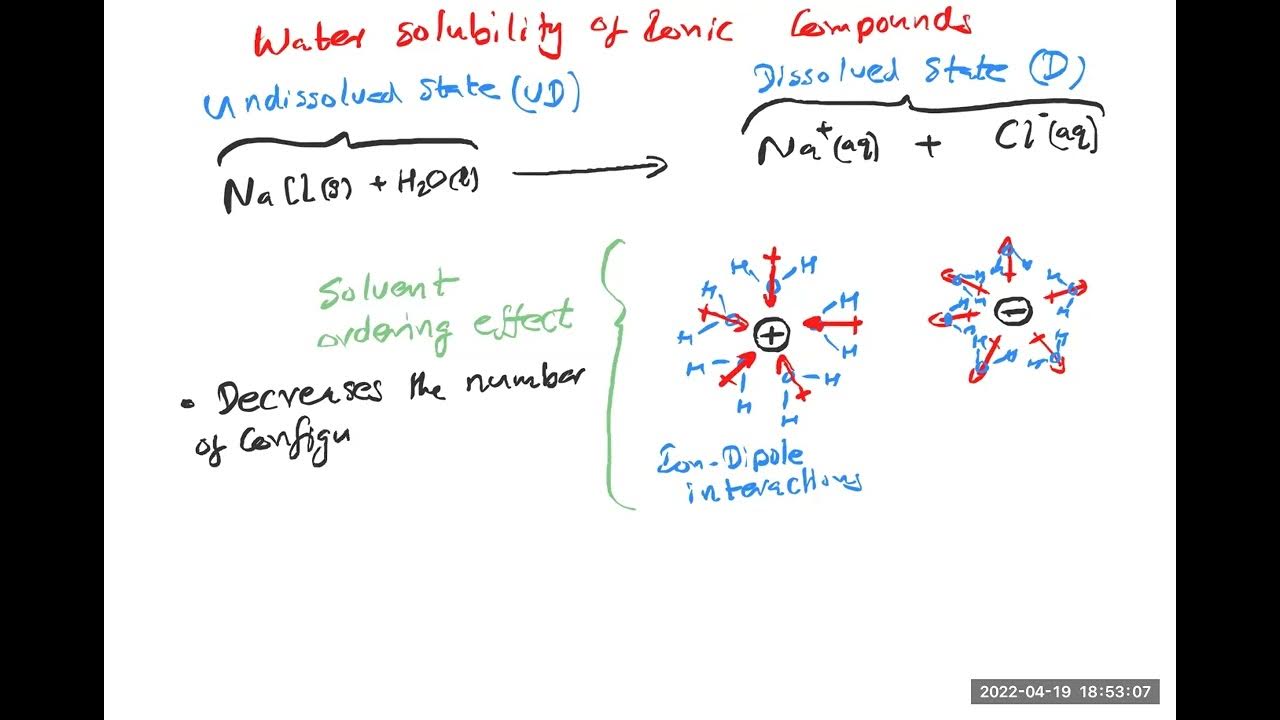 Water solubility of Ionic Compounds
Undissolved state (UD)
Dissolved state (D)
NaCl(s) + H₂O(l) ⟶ Na⁺(aq) + Cl⁻(aq)
Solvent
ordering effect
• Decreases the number
of configu
H H
H H
H H
H H
H H
+
O O
O
H H
H
H
H
H
H
−
Ion-Dipole
interactions
2022-04-19 18:53:07